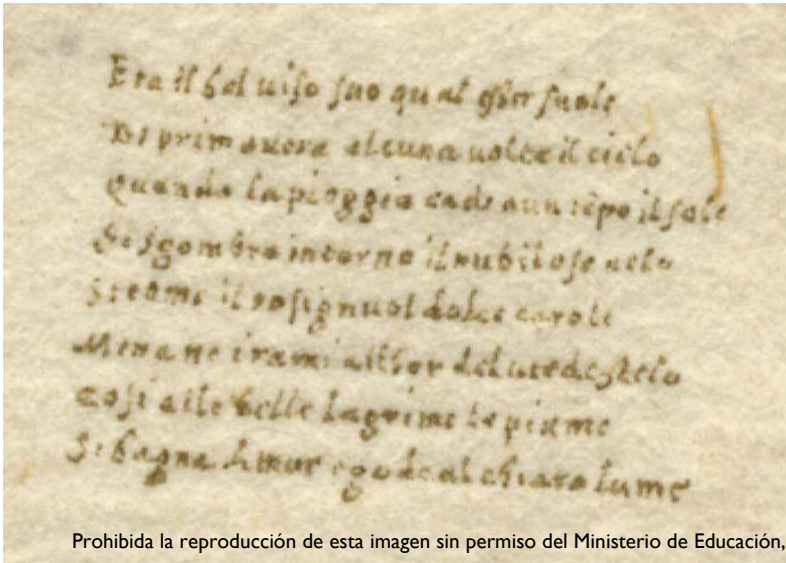 Era il bel uiso suo qual esser suole
Di primauera alcuna uolta il cielo
Quando la pioggia cade a un tēpo il sole
Si sgombra intorno il nubiloso uelo
E come il rosignuol dolce carole
Mena ne i rami allhor del uerde stelo
Cosi alle belle lagrime le piume
Si bagna Amor e gode al chiaro lume
Prohibida la reproducción de esta imagen sin permiso del Ministerio de Educación,